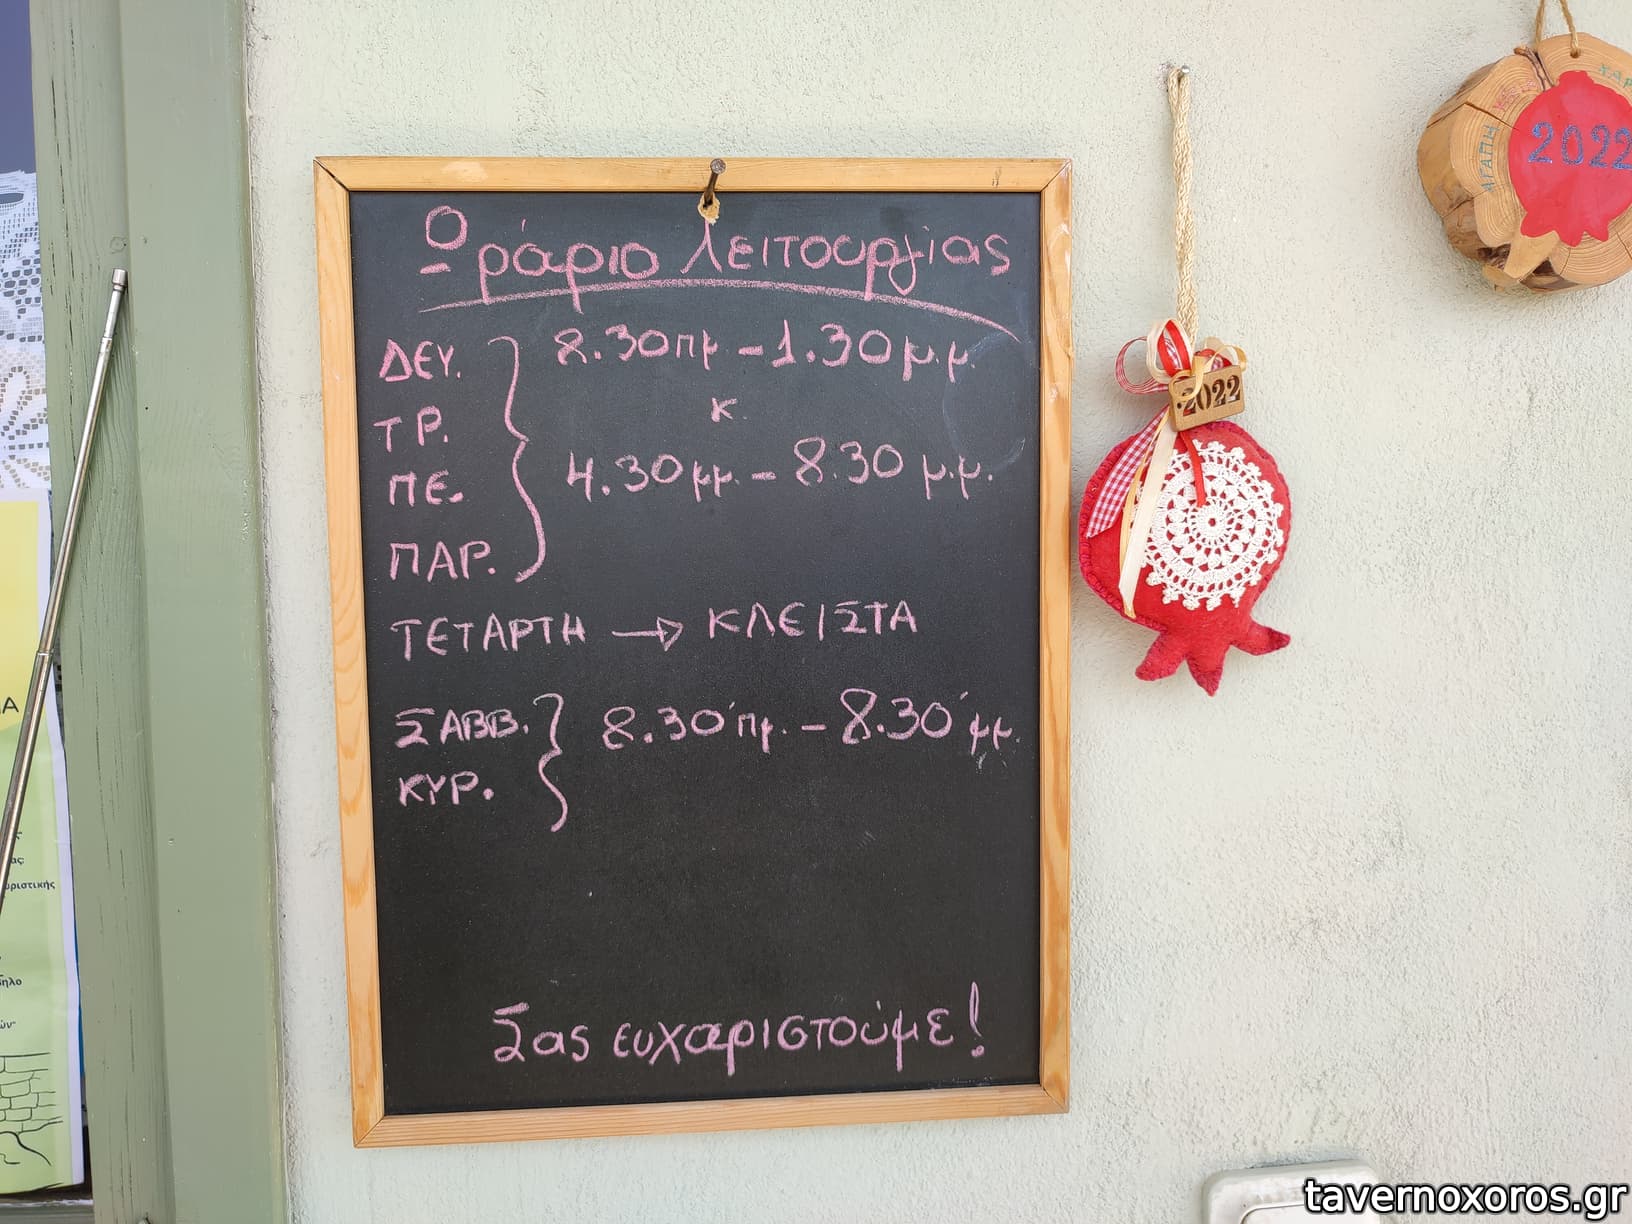 Ωράριο λειτουργίας
ΔΕΥ.
ΤΡ.
ΠΕ.
ΠΑΡ.
8.30πμ - 1.30μ.μ.
κ.
4.30μμ. - 8.30 μ.μ.
ΤΕΤΑΡΤΗ → ΚΛΕΙΣΤΑ
ΣΑΒΒ.
ΚΥΡ.
8.30΄πμ. - 8.30΄μμ.
Σας ευχαριστούμε!
2022
ΑΓΑΠΗ
ΧΑΡ
2022
tavernoxoros.gr